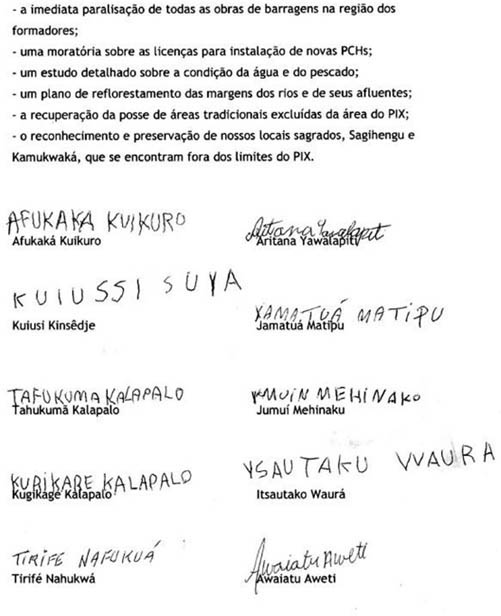 - a imediata paralisação de todas as obras de barragens na região dos
formadores;
- uma moratória sobre as licenças para instalação de novas PCHs;
- um estudo detalhado sobre a condição da água e do pescado;
- um plano de reflorestamento das margens dos rios e de seus afluentes;
- a recuperação da posse de áreas tradicionais excluídas da área do PIX;
- o reconhecimento e preservação de nossos locais sagrados, Sagihengu e
Kamukwaká, que se encontram fora dos limites do PIX.
AFUKAKA KUIKURO
Afukaká Kuikuro
Aritana Yawalapiti
Aritana Yawalapiti
KUIUSSI SUYA
Kuiusi Kinsêdje
YAMATUÁ MATIPU
Jamatuá Matipu
TAFUKUMA KALAPALO
Tahukumã Kalapalo
YMUIN MEHINAKO
Jumuí Mehinaku
KURIKARE KALAPALO
Kugikagé Kalapalo
YSAUTAKU WAURA
Itsautako Waurá
TIRIFE NAFUKUÁ
Tirifé Nahukwá
Awaiatu Aweti
Awaiatu Aweti